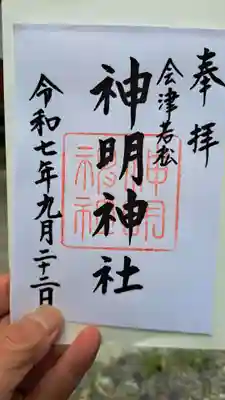 奉拝
会津若松
神明神社
令和七年九月二十二日
神明神社